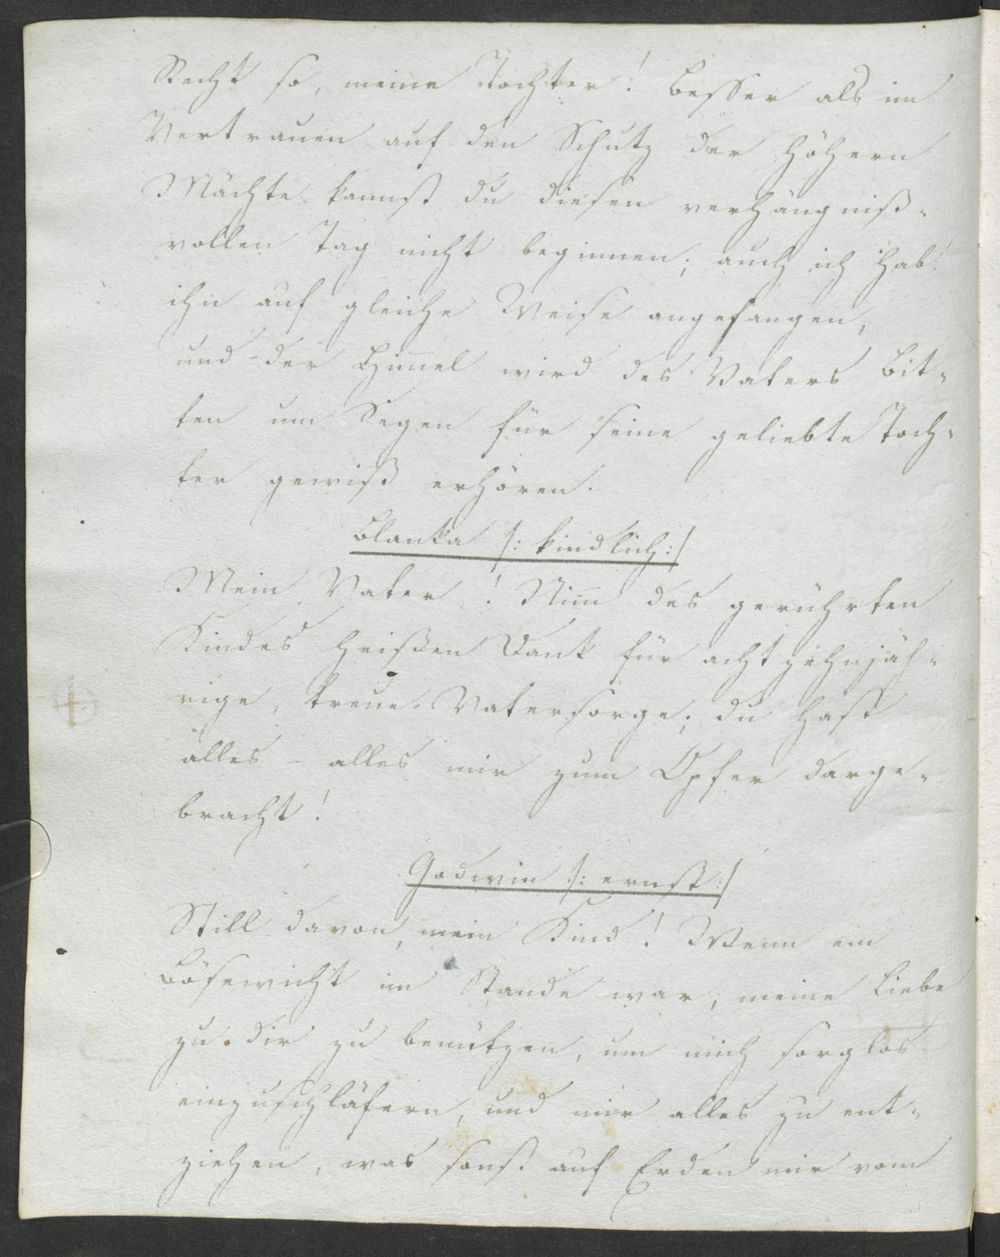 Recht so, meine Tochter! Besser als im
Vertrauen auf den Schutz der höhern
Mächte kannst du diesen verhängniß-
vollen Tag nicht beginnen; auch ich hab'
ihn auf gleiche Weise angefangen,
und der Him̄el wird des Vaters Bit-
ten um Segen für seine geliebte Toch-
ter gewiß erhören.
Blanka /: kindlich :/
Mein Vater! Nim̄ des gerührten
Kindes heißen Dank für achtzehnjäh-
rige, treue Vatersorge; du hast
alles – alles mir zum Opfer darge-
bracht!
Godwin /: ernst :/
Still davon, mein Kind! Wenn ein
Bösewicht im Stande war, meine Liebe
zu dir zu benützen, um mich sorglos
einzuschläfern, und mir alles zu ent-
ziehen, was sonst auf Erden mir vom